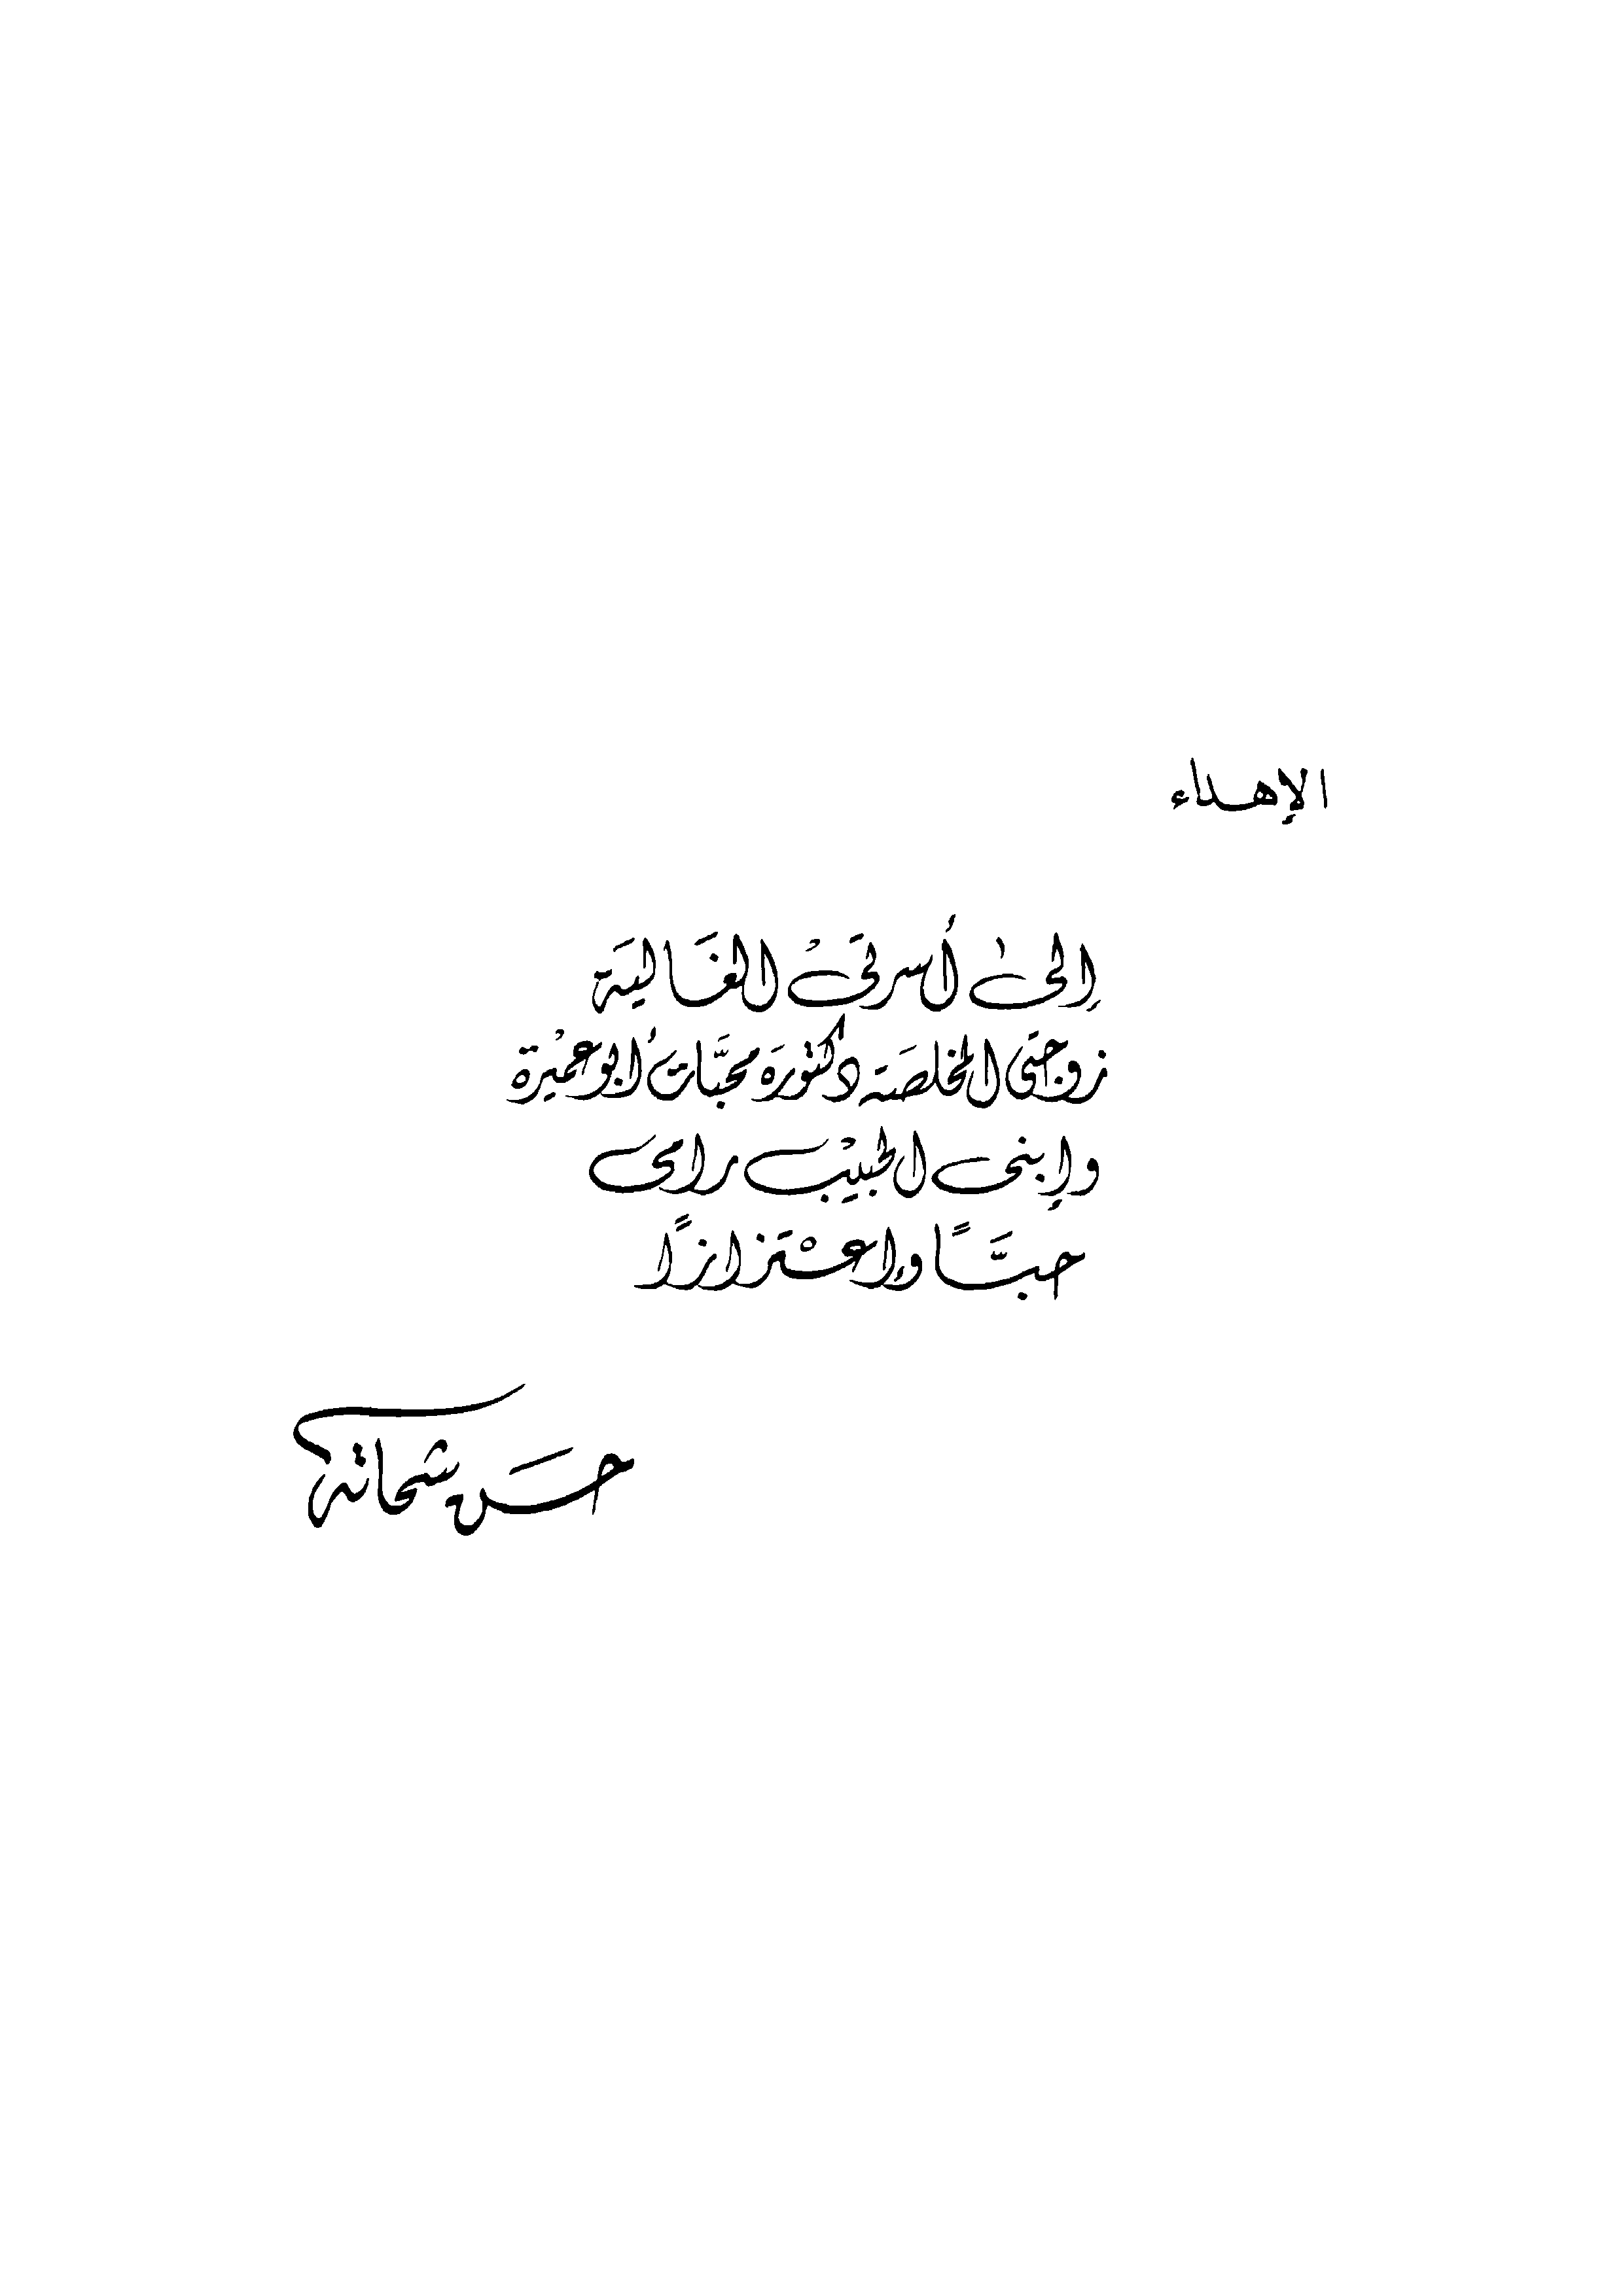 الإهداء
إلى أسرتى الغالية
زوجتى المخلصة دكتورة محبَّات أبو عميرة
وإبنى الحبيب رامى
حبَّاً وإعتزازاً
حسن شحاته